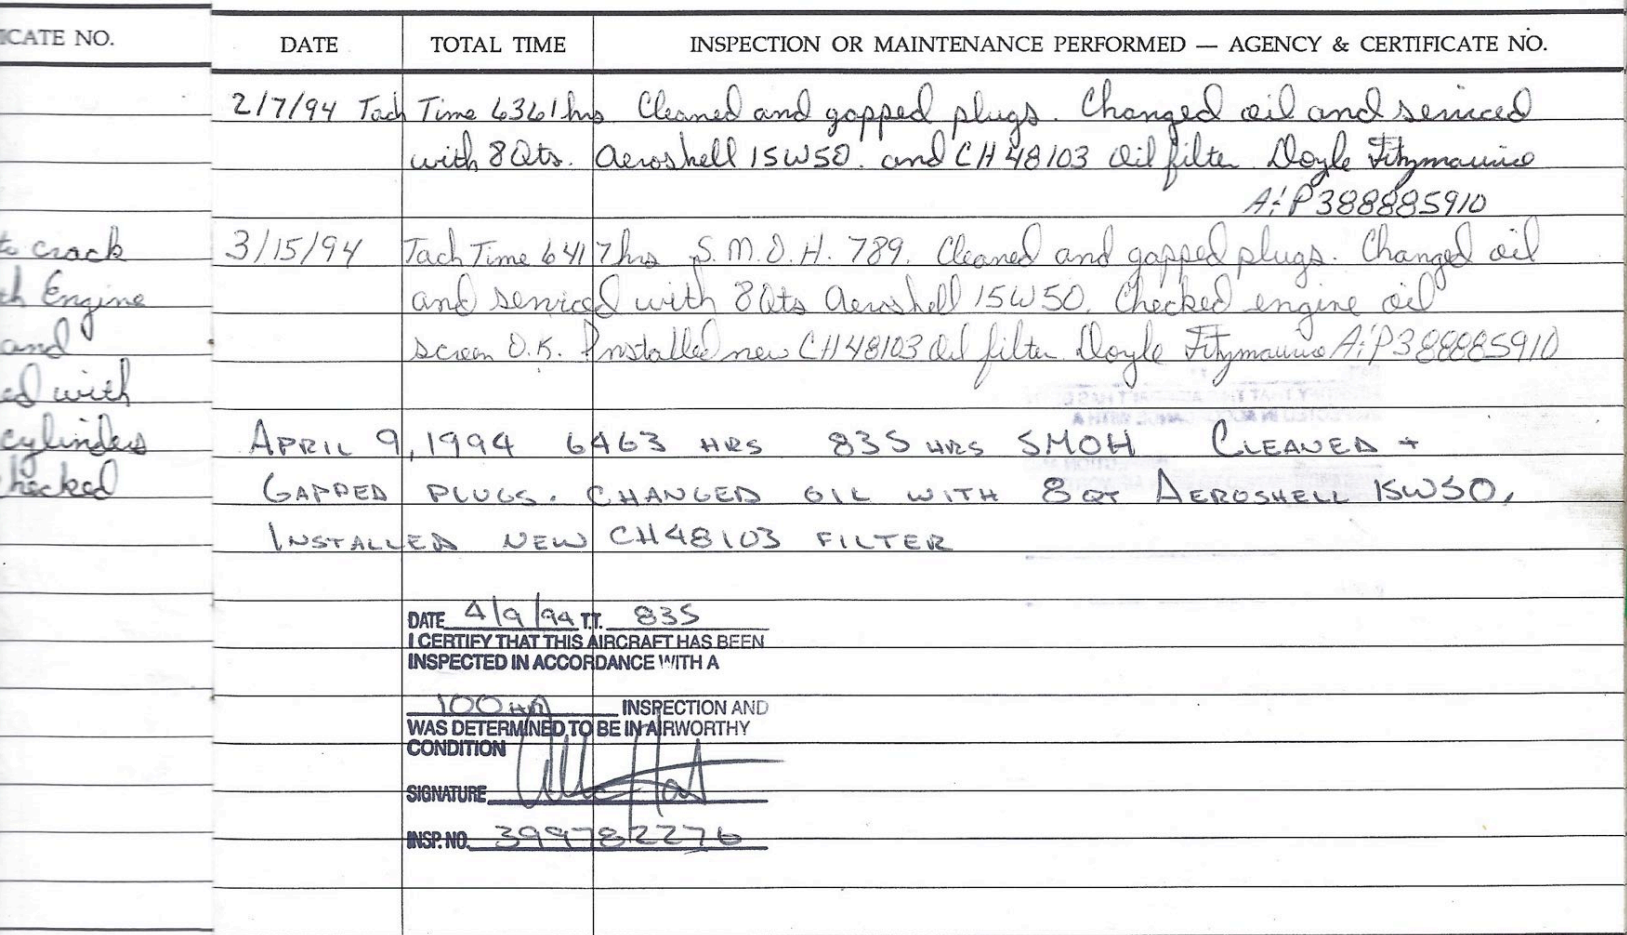 ICATE NO.
to crack
th Engine
and
ed with
cylinders
hecked
DATE TOTAL TIME INSPECTION OR MAINTENANCE PERFORMED — AGENCY & CERTIFICATE NO.
2/7/94 Tach Time 6361 hrs Cleaned and gapped plugs. Changed oil and serviced
with 8 Qts. Aeroshell 15W50. and CH48103 Oil filter Doyle Fitzmaurice
A&P388885910
3/15/94 Tach Time 6417 hrs S.M.O.H. 789. Cleaned and gapped plugs. Changed oil
and serviced with 8 Qts Aeroshell 15W50. Checked engine oil
screen O.K. Installed new CH48103 Oil filter Doyle Fitzmaurice A&P388885910
APRIL 9, 1994 6463 HRS 835 HRS SMOH CLEANED +
GAPPED PLUGS. CHANGED OIL WITH 8 QT AEROSHELL 15W50,
INSTALLED NEW CH48103 FILTER
DATE 4/9/94 T.T. 835
I CERTIFY THAT THIS AIRCRAFT HAS BEEN
INSPECTED IN ACCORDANCE WITH A
100 HR INSPECTION AND
WAS DETERMINED TO BE IN AIRWORTHY
CONDITION
SIGNATURE
INSP. NO. 399782276